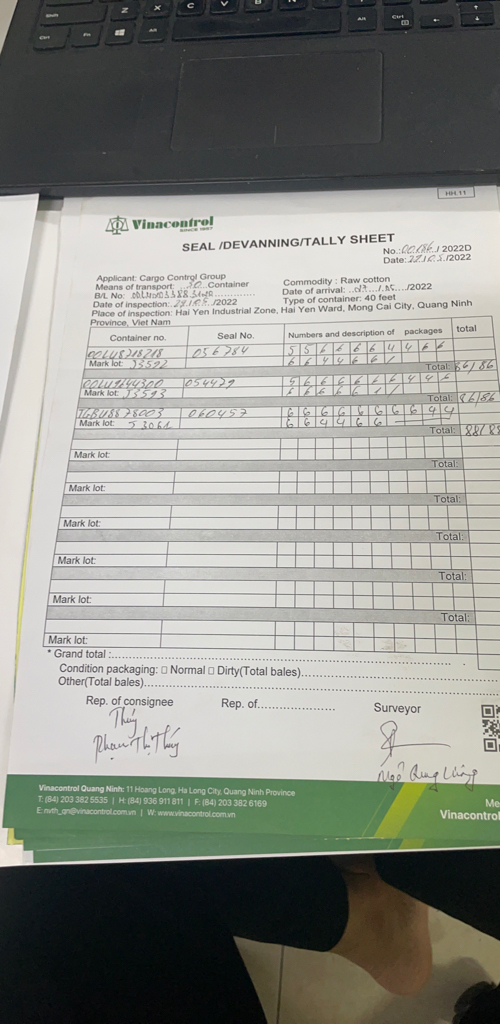 HH.11
Vinacontrol
SINCE 1957
SEAL /DEVANNING/TALLY SHEET
No.: 00186 / 2022D
Date: 28/05/2022
Applicant: Cargo Control Group
Commodity : Raw cotton
Means of transport: Container
Date of arrival: /2022
B/L No:
Type of container: 40 feet
Date of inspection: 28/05/2022
Place of inspection: Hai Yen Industrial Zone, Hai Yen Ward, Mong Cai City, Quang Ninh
Province, Viet Nam
Container no. Seal No. Numbers and description of packages total
OOLU8218218 036784 5 5 6 6 6 6 4 4 6 6
Mark lot: 33592 6 6 4 4 6 6 1
Total: 86/86
054429
Mark lot: 33593
Total: 86/86
TGBU8878003 060457 6 6 6 6 6 6 6 6 4 4
Mark lot: 6 6 4 4 6 6
Total: 88/88
Mark lot:
Total:
Mark lot:
Total:
Mark lot:
Total:
Mark lot:
Total:
Mark lot:
Total:
Mark lot:
* Grand total :
Condition packaging: □ Normal □ Dirty(Total bales)
Other(Total bales)
Rep. of consignee Rep. of Surveyor
Thúy
Phạm Thị Thúy
Ngô Quang
Vinacontrol Quang Ninh: 11 Hoang Long, Ha Long City, Quang Ninh Province
T: (84) 203 382 5535 | H: (84) 936 911 811 | F: (84) 203 382 6169
E: nvth_qn@vinacontrol.com.vn | W: www.vinacontrol.com.vn
Me
Vinacontrol
Shift Z X C V B
Ctrl Fn Alt Alt Ctrl